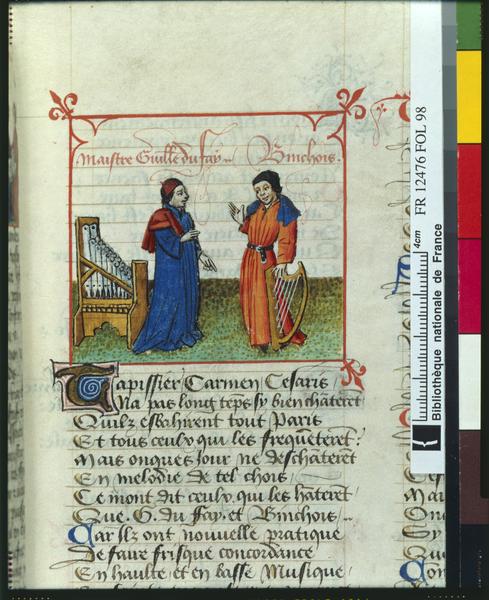 Maistre Guille du fay.. Binchois.
Tapissier Carmen Cesaris
Na pas long teps sy bien chāteret
Quilz esbahirent tout Paris
Et tous ceulx qui les frequēteret:
Mais onques Jour ne deschāteret
En melodie de tel chois
Ce mont dit ceulx qui les hāteret
Que .G. du Fay et Binchois..
Car Ilz ont nouuelle pratique
De faire frisque concordance
En haulte et en basse Musique
4cm FR 12476 FOL 98
Bibliothèque nationale de France